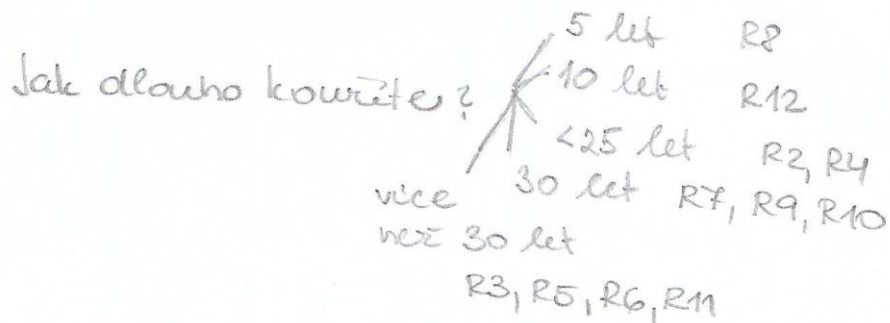 5 let R8
Jak dlouho kouříte?
10 let R12
<25 let R2, R4
30 let R7, R9, R10
více
než 30 let
R3, R5, R6, R11